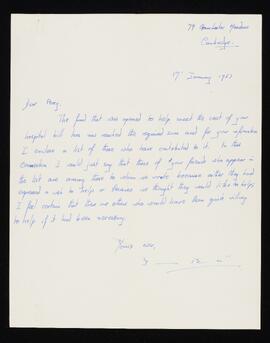 79 Gwydir Meadows
Cambridge.
17 January 1953
Dear Percy,
The fund that was opened to help meet the cost of your
hospital bill has now reached the required sum and for your information
I enclose a list of those who have contributed to it. In this
connection I could just say that those of your friends who appear in
the list are among those to whom we wrote because either they had
expressed a wish to help or because we thought they would like to help.
I feel certain that there are others who would have been quite willing
to help if it had been necessary.
Yours ever,